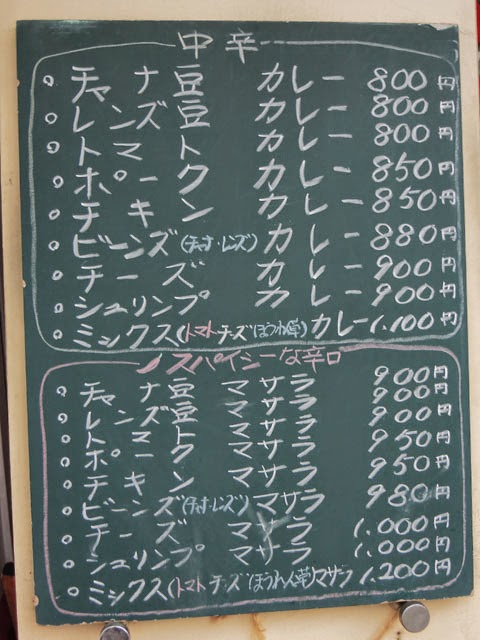 中辛
。チャナ豆 カレー 800円
。レンズ豆 カレー 800円
。トマト カレー 800円
。ポーク カレー 850円
。チキン カレー 850円
。ビーンズ(チャナ・レンズ) カレー 880円
。チーズ カレー 900円
。シュリンプ カレー 900円
。ミックス(トマトチーズほうれん草)カレー 1.100円
スパイシーな辛口
。チャナ豆 マサラ 900円
。レンズ豆 マサラ 900円
。トマト マサラ 900円
。ポーク マサラ 950円
。チキン マサラ 950円
。ビーンズ(チャナ・レンズ)マサラ 980円
。チーズ マサラ 1.000円
。シュリンプ マサラ 1.000円
。ミックス(トマトチーズほうれん草)マサラ 1.200円